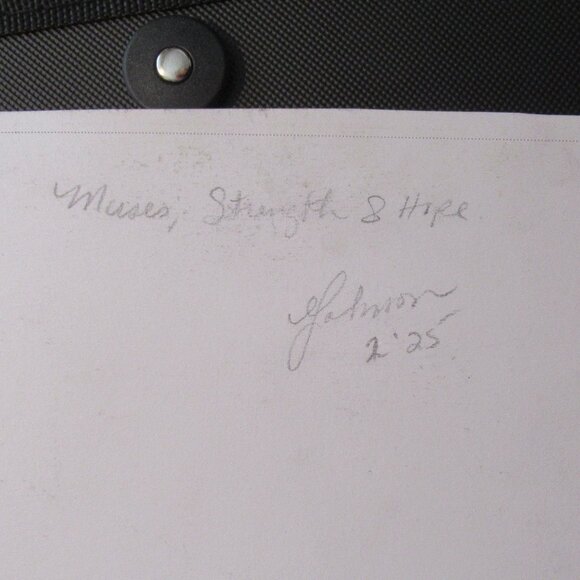 Muses, Strength & Hope
Johnson
2'25